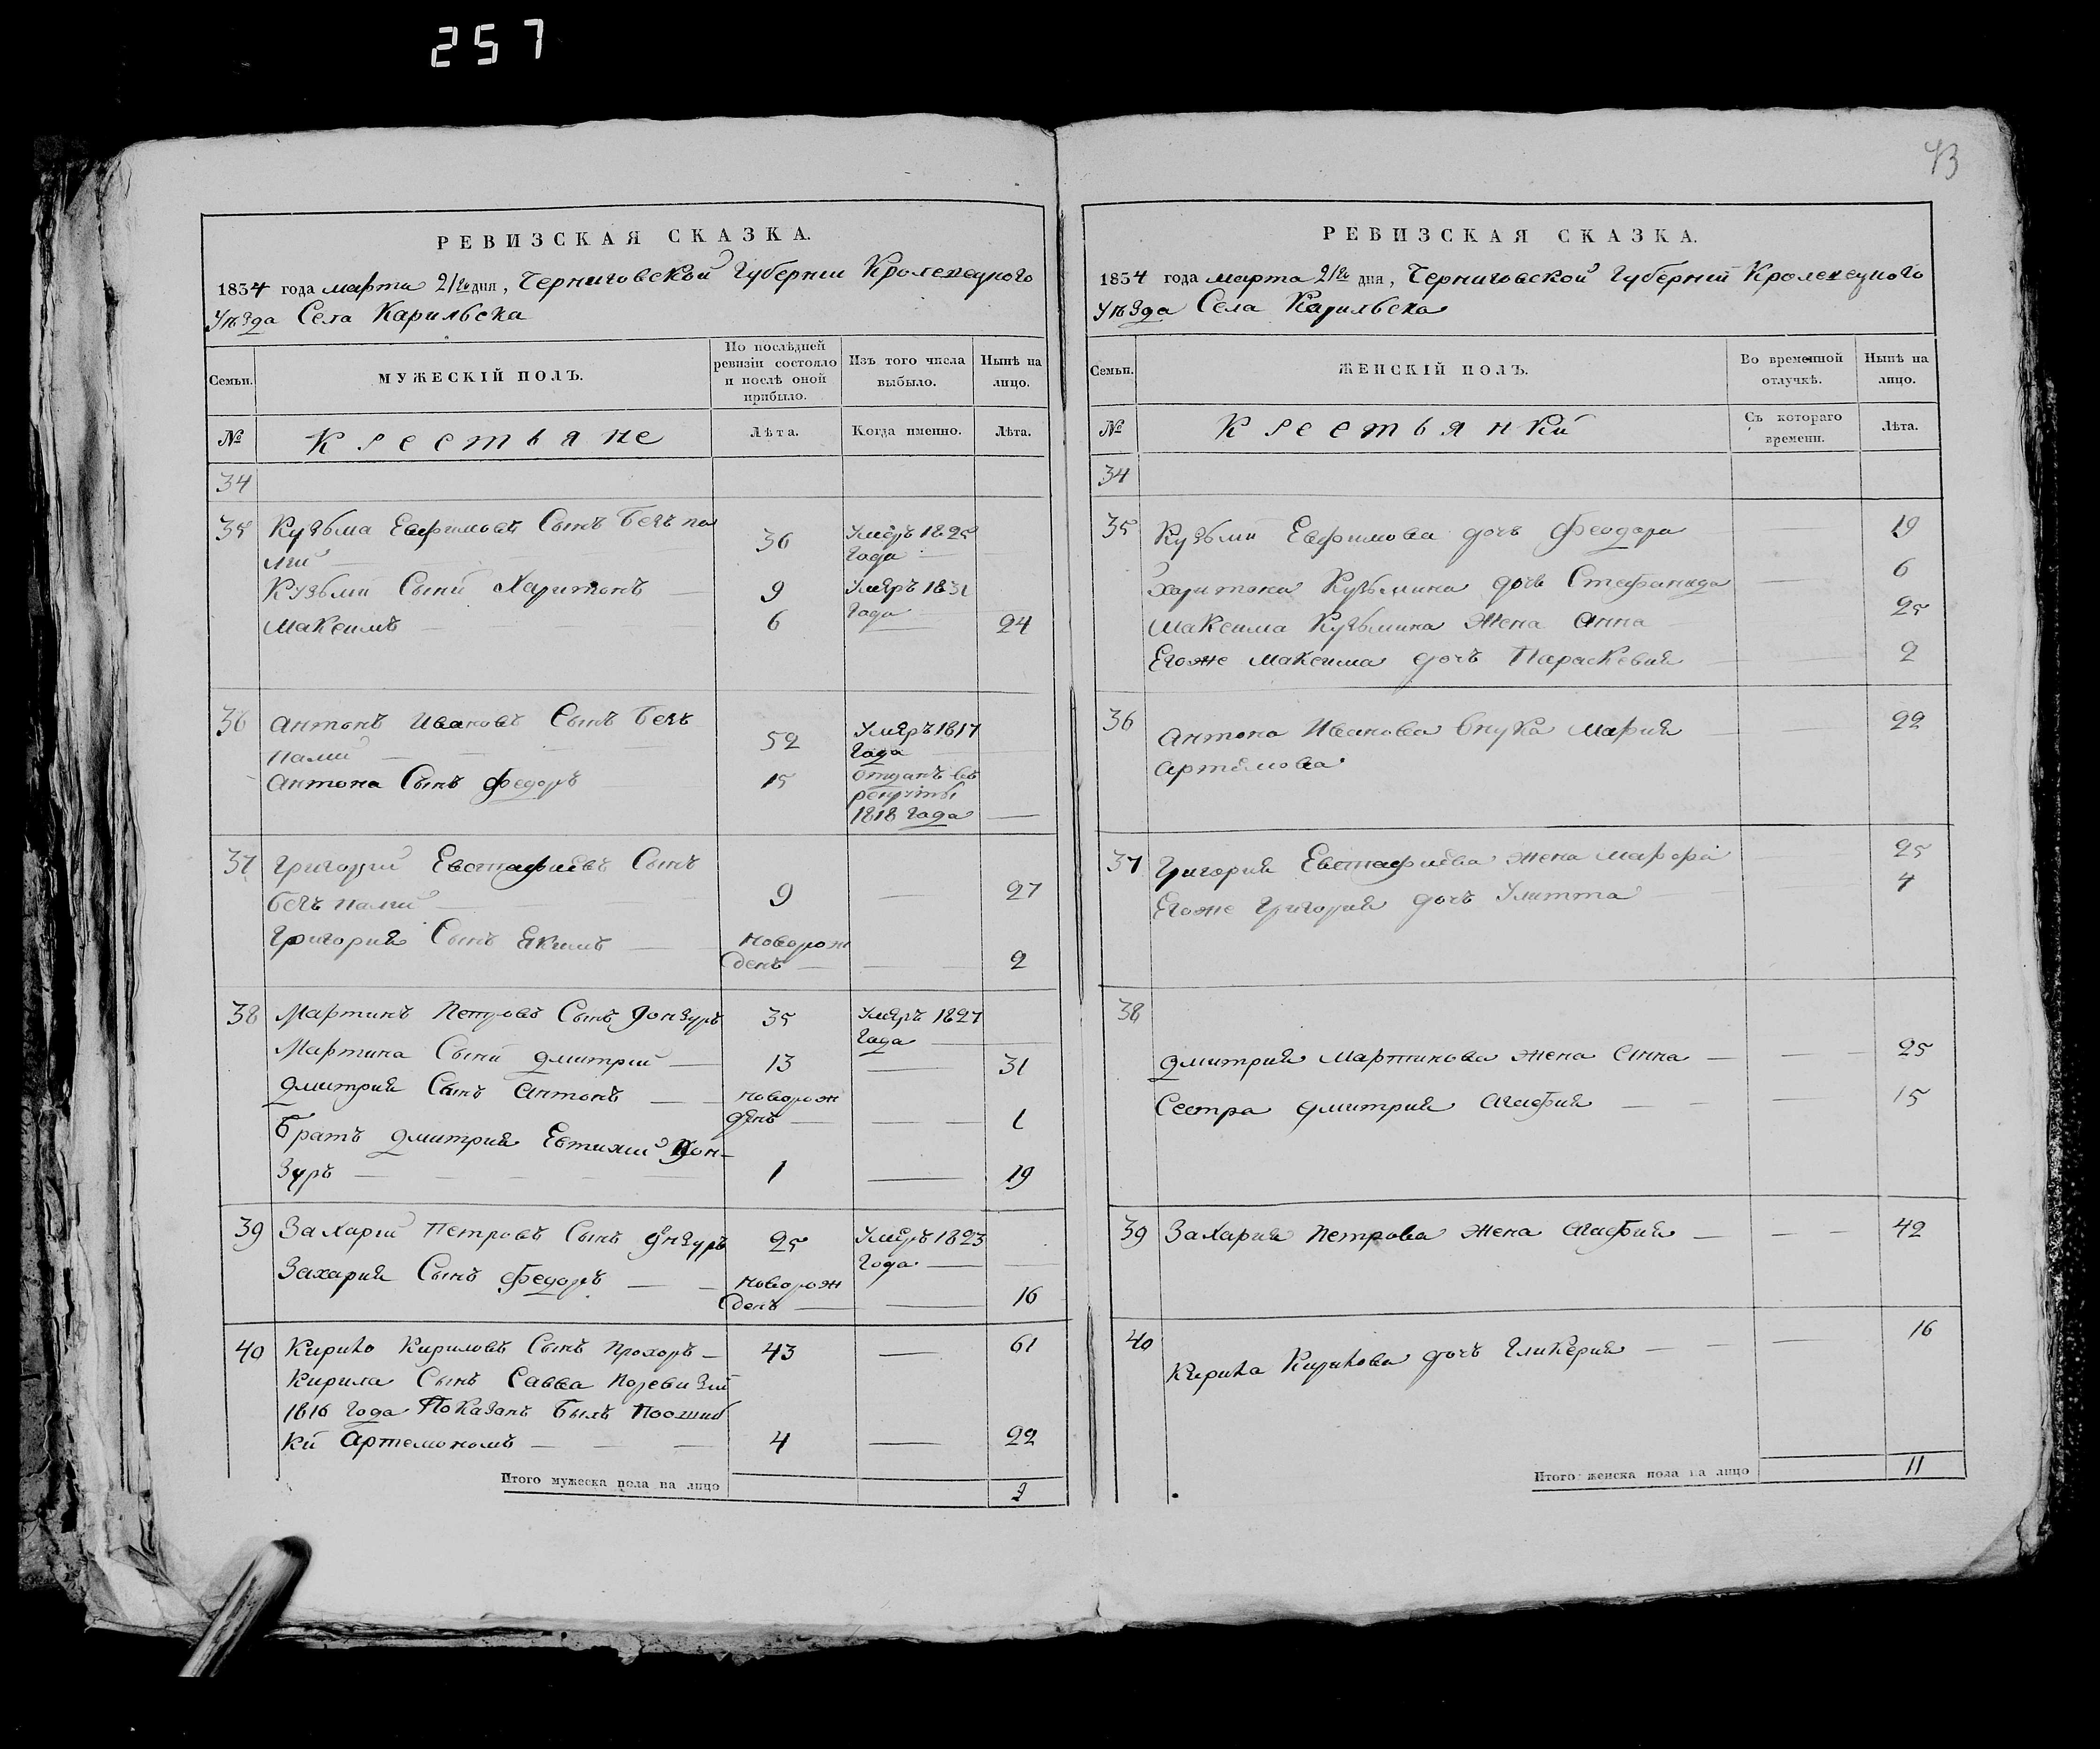 257
43
РЕВИЗСКАЯ СКАЗКА.
1834 года марта 21го дня, Черниговской Губернии Кролевецкого
Уѣзда Села Карильска
Семьи.
МУЖЕСКІЙ ПОЛЪ.
По послѣдней ревизіи состояло и послѣ оной прибыло.
Изъ того числа выбыло.
Нынѣ на лицо.
№
Крестьяне
Лѣта.
Когда именно.
Лѣта.
34
35 Кузьма Евфимовъ Сынъ Безпа 36 Умеръ 1825
лий Года
Кузьми Сыни Харитонъ 9 Умеръ 1831
Максимъ 6 Года 24
36 Антонъ Ивановъ Сынъ Безъ 52 Умеръ 1817
палий Года
Антона Сынъ Федоръ 15 отданъ въ
рекруты
1818 Года
37 Григорий Евстафиевъ Сынъ
безъ палий 9 27
Григория Сынъ Якимъ новорож
денъ 2
38 Мартинъ Петровъ Сынъ Донзуръ 35 Умеръ 1827
Года
Мартина Сыни Дмитрий 13 31
Дмитрия Сынъ Антонъ новорож
денъ 1
Братъ Дмитрия Евтихий Дон-
зуръ 1 19
39 Захарий Петровъ Сынъ Донзуръ 25 Умеръ 1823
Года
Захария Сынъ Федоръ новорож
денъ 16
40 Кирило Кириловъ Сынъ Прохоръ 43 61
Кирила Сынъ Савва поревизии
1816 Года Показанъ былъ Поошиб
ки Артемономъ 4 22
Итого мужеска пола на лицо 9
РЕВИЗСКАЯ СКАЗКА.
1834 года марта 21го дня, Черниговской Губернии Кролевецкого
Уѣзда Села Карильска
Семьи.
ЖЕНСКІЙ ПОЛЪ.
Во временной отлучкѣ.
Нынѣ на лицо.
№
Крестьянки
Съ котораго времени.
Лѣта.
34
35 Кузьми Евфимова дочь Феодора 19
Харитона Кузьмина дочь Стефанида 6
Максима Кузьмина жена Анна 25
Егоже Максима дочь Параскевия 2
36 Антона Иванова внука Мария 22
Артемова
37 Григория Евстафиева жена Марфа 25
Егоже Григория дочь Улитта 4
38
Дмитрия Мартинова жена Анна 25
Сестра Дмитрия Агафия 15
39 Захария Петрова жена Агафия 42
40 Кирила Кирилова дочь Гликерия 16
Итого женска пола на лицо 11